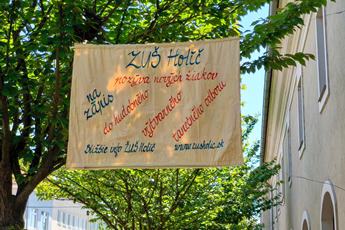 ZUŠ Holíč
pozýva nových žiakov
na zápis
do hudobného
výtvarného
tanečného odboru
Bližšie info ZUŠ Holíč www.zusholic.sk